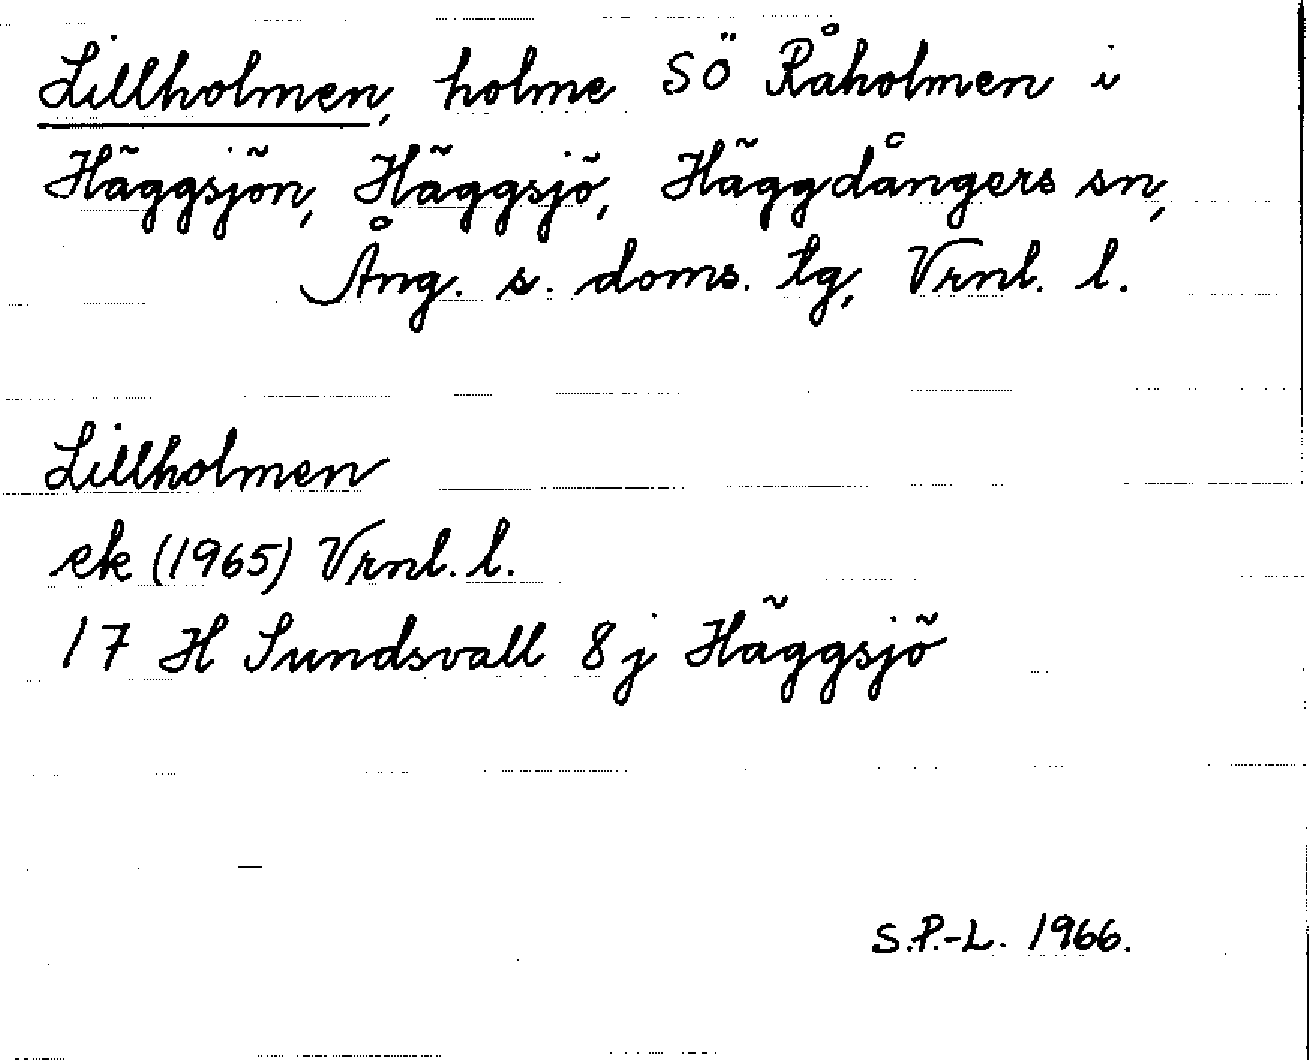 Lillholmen, holme SÖ Råholmen i
Häggsjön, Häggsjö, Häggdångers sn,
Ång. s. doms. tg, Vrnl. l.
Lillholmen
ek (1965) Vrnl. l.
17 H Sundsvall 8 j Häggsjö
S.P.-L. 1966.